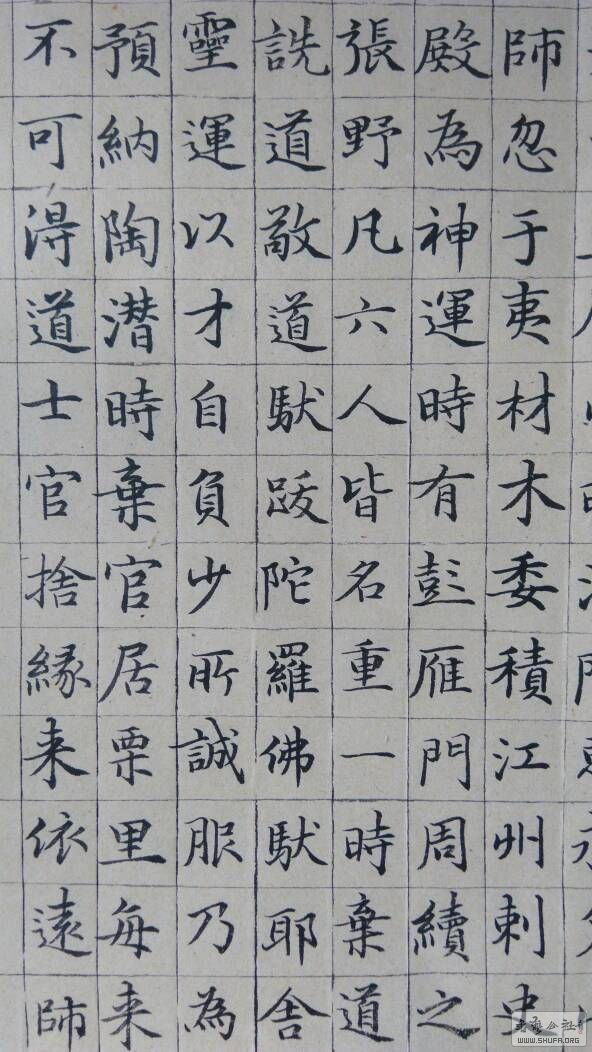 師忽于夷材木委積江州刺史
殿為神運時有彭雁門周續之
張野凡六人皆名重一時棄道
詵道敞道馱跋陀羅佛馱耶舍
靈運以才自負少所誠服乃為
預納陶潜時棄官居栗里每来
不可淂道士官捨縁来依遠師
WWW.SHUFA.ORG